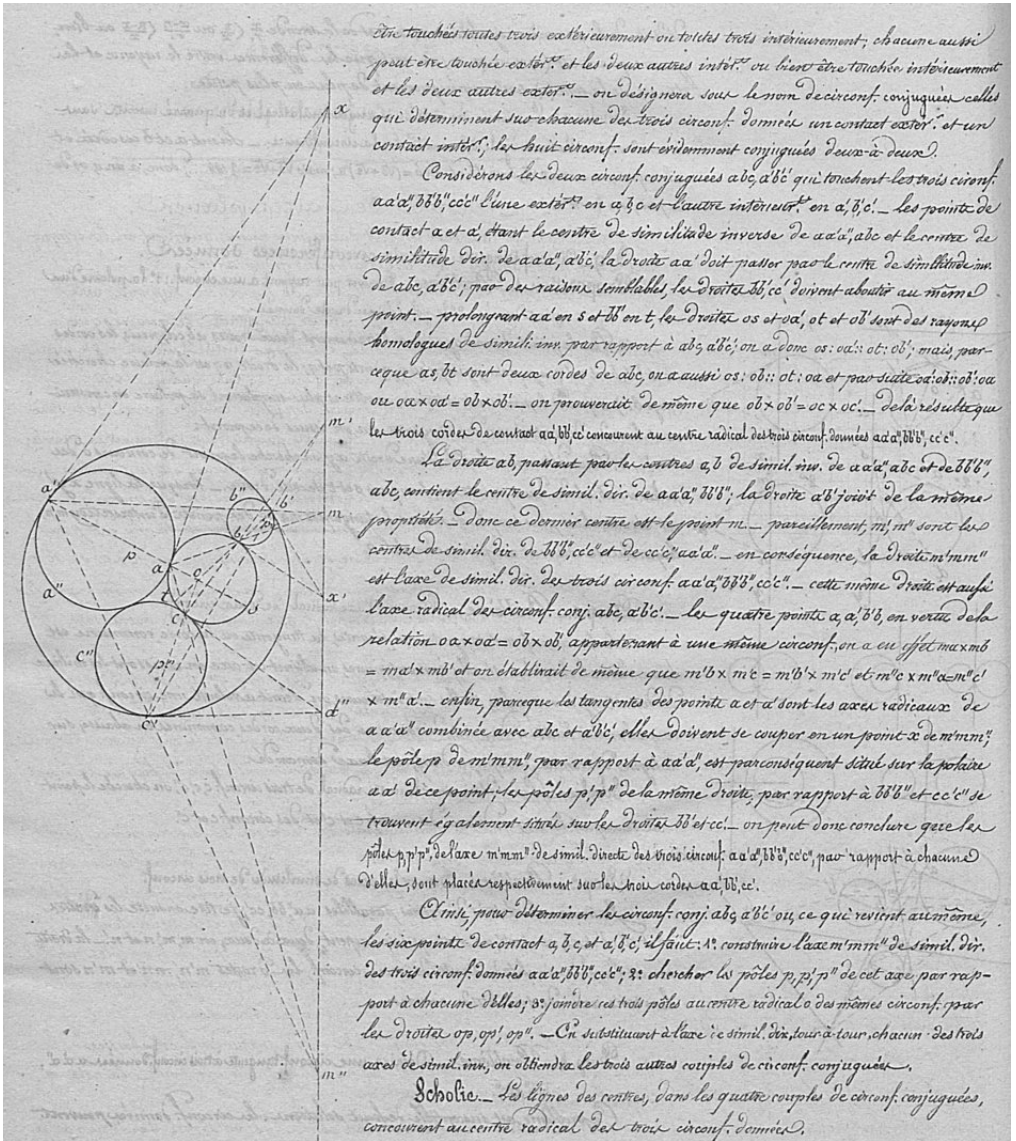 être touchées toutes trois extérieurement ou toutes trois intérieurement; chacune aussi
peut être touchée extér.t et les deux autres intér.t ou bien être touchée intérieurement
et les deux autres extér.t — on désignera sous le nom de circonf. conjuguées celles
qui déterminent sur chacune des trois circonf. données un contact extér.r et un
contact intér.r; les huit circonf. sont évidemment conjuguées deux-à-deux.
Considérons les deux circonf. conjuguées abc, a'b'c' qui touchent les trois circonf.
aa'a", bb'b", cc'c" l'une extér.t en a,b,c et l'autre intérieur.t en a',b',c'. — les points de
contact a et a', étant le centre de similitude inverse de aa'a", abc et le centre de
similitude dir. de aa'a", a'b'c', la droite aa' doit passer par le centre de similitude inv.
de abc, a'b'c'; par des raisons semblables, les droites bb', cc' doivent aboutir au même
point. — prolongeant aa' en s et bb' en t, les droites os et oa', ot et ob' sont des rayons
homologues de simili. inv. par rapport à abc, a'b'c'; on a donc os : oa' :: ot : ob'; mais, par-
ceque as, bt sont deux cordes de abc, on a aussi os : ob :: ot : oa et par suite oa' : ob :: ob' : oa
ou oa × oa' = ob × ob'. — on prouverait de même que ob × ob' = oc × oc'. — delà résulte que
les trois cordes de contact aa', bb', cc' concourent au centre radical des trois circonf. données aa'a", bb'b", cc'c".
La droite ab, passant par les centres a, b de simil. inv. de aa'a", abc et de bb'b",
abc, contient le centre de simil. dir. de aa'a", bb'b"; la droite a'b' jouit de la même
propriété. — donc ce dernier centre est le point m. — pareillement, m', m" sont les
centres de simil. dir. de bb'b", cc'c" et de cc'c", aa'a" — en conséquence, la droite m'mm"
est l'axe de simil. dir. des trois circonf. aa'a", bb'b", cc'c". — cette même droite est aussi
l'axe radical des circonf. conj. abc, a'b'c'. — les quatre points a, a', b', b, en vertu de la
relation oa × oa' = ob × ob', appartenant à une même circonf., on a en effet ma × mb
= ma' × mb' et on établirait de même que m'b × m'c = m'b' × m'c' et m"c × m"a = m"c'
× m"a'. — enfin, parceque les tangentes des points a et a' sont les axes radicaux de
aa'a" combinée avec abc et a'b'c', elles doivent se couper en un point x de m'mm";
le pôle p de m'mm", par rapport à aa'a", est par conséquent situé sur la polaire
aa' de ce point; les pôles p', p" de la même droite, par rapport à bb'b" et cc'c" se
trouvent également situés sur les droites bb' et cc'. — on peut donc conclure que les
pôles p, p', p", de l'axe m'mm" de simil. directe des trois circonf. aa'a", bb'b", cc'c", par rapport à chacune
d'elles, sont placés respectivement sur les trois cordes aa', bb', cc'.
Ainsi, pour déterminer les circonf. conj. abc, a'b'c' ou, ce qui revient au même,
les six points de contact a, b, c, et a', b', c', il faut : 1° construire l'axe m'mm" de simil. dir.
des trois circonf. données aa'a", bb'b", cc'c"; 2° chercher les pôles p, p', p" de cet axe, par rap-
port à chacune d'elles; 3° joindre ces trois pôles au centre radical o des mêmes circonf. par
les droites op, op', op". — En substituant à l'axe de simil. dir., tour à tour, chacun des trois
axes de simil. inv., on obtiendra les trois autres couples de circonf. conjuguées.
Scholie. — Les lignes des centres, dans les quatre couples de circonf. conjuguées,
concourent au centre radical des trois circonf. données.
x
m'
a'
b"
b'
m
b
p
a
o
a"
t
s
x'
c
c"
p"
c'
x"
m"